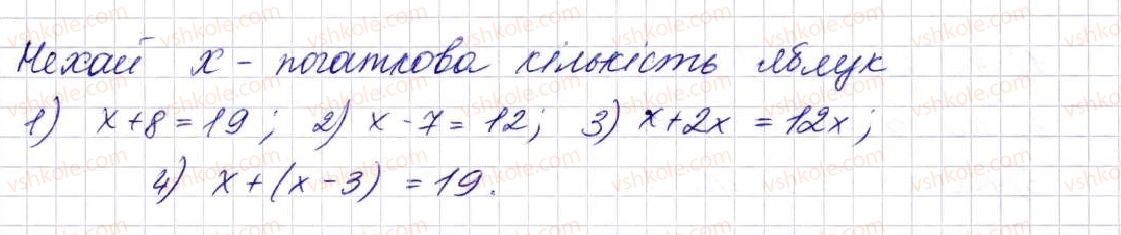 Нехай x - початкова кількість яблук
1) x+8=19; 2) x-7=12; 3) x+2x=12x;
4) x+(x-3)=19.